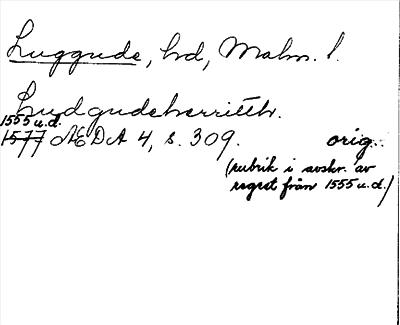 Luggude, hd, Malm. l.
Ludgudeherritth.
1555 u.d.
1577 ÆDA 4, s. 309. orig.
(rubrik i avskr. av
regest från 1555 u.d.)